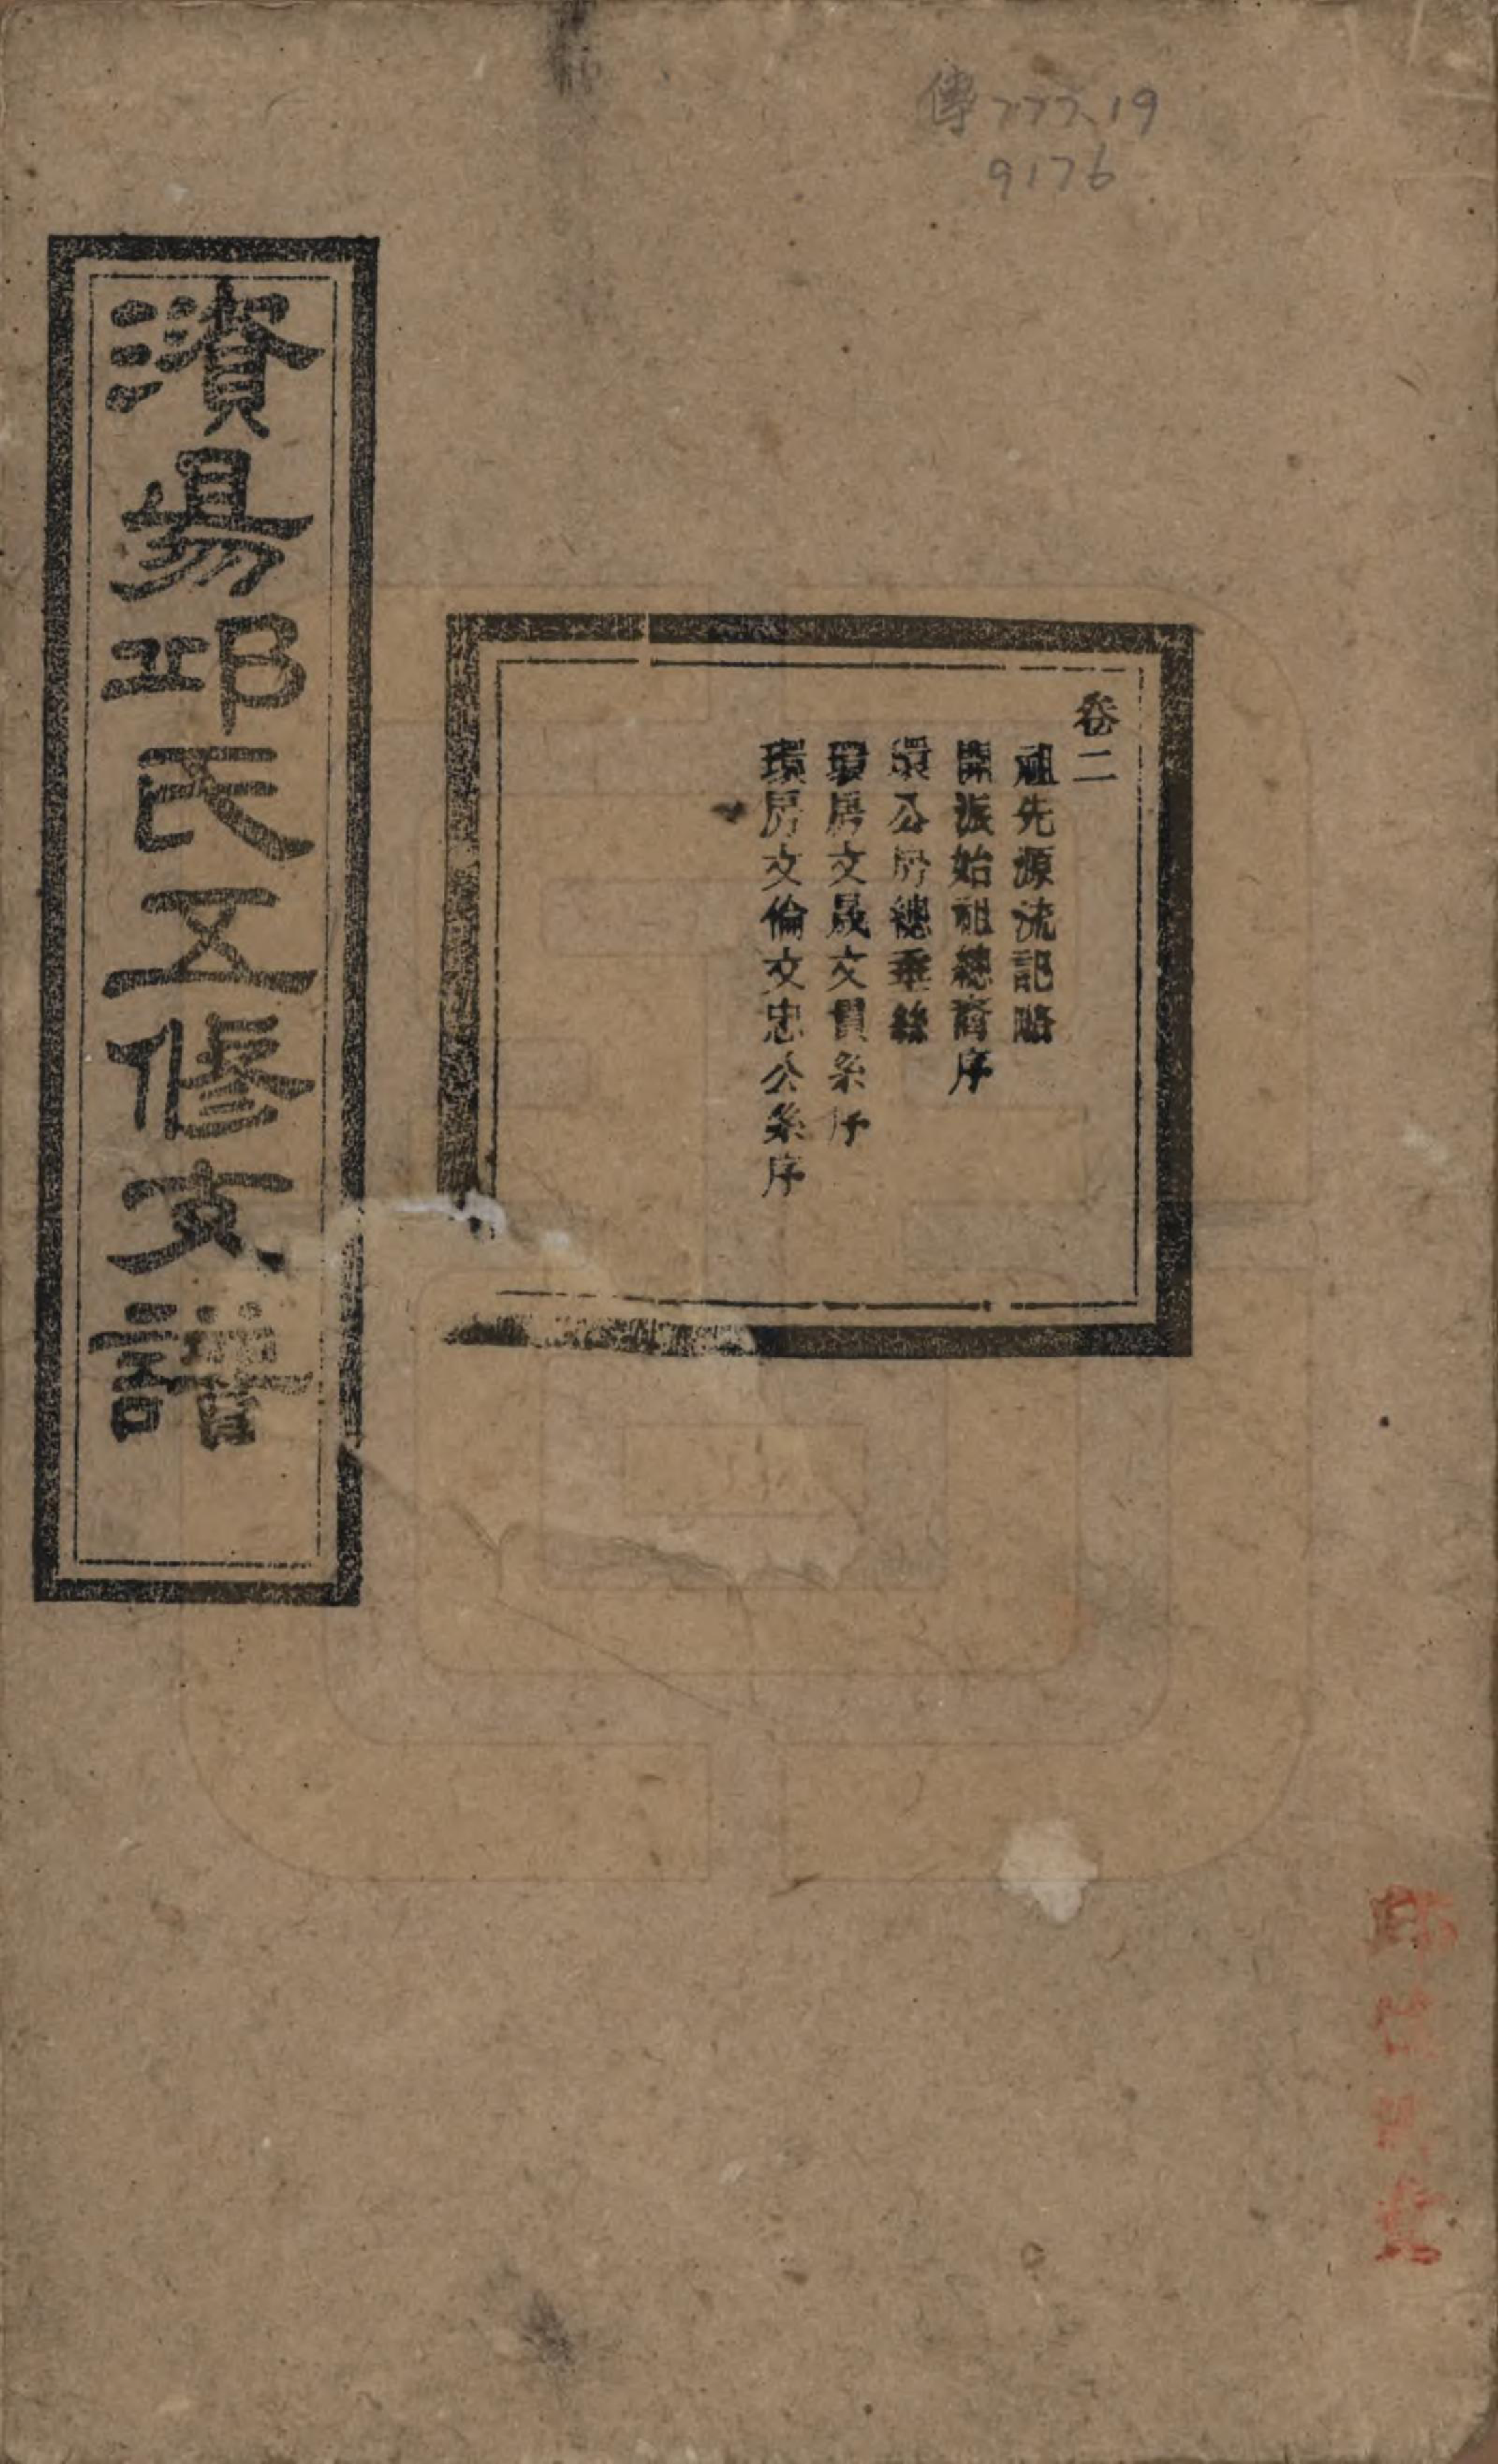 傳777.19
9176
卷二
祖先源流記略
開派始祖總齊序
環公房總垂絲
環房文晟文貫糸序
環房文倫文忠公糸序
澬昜邱氏五修支譜